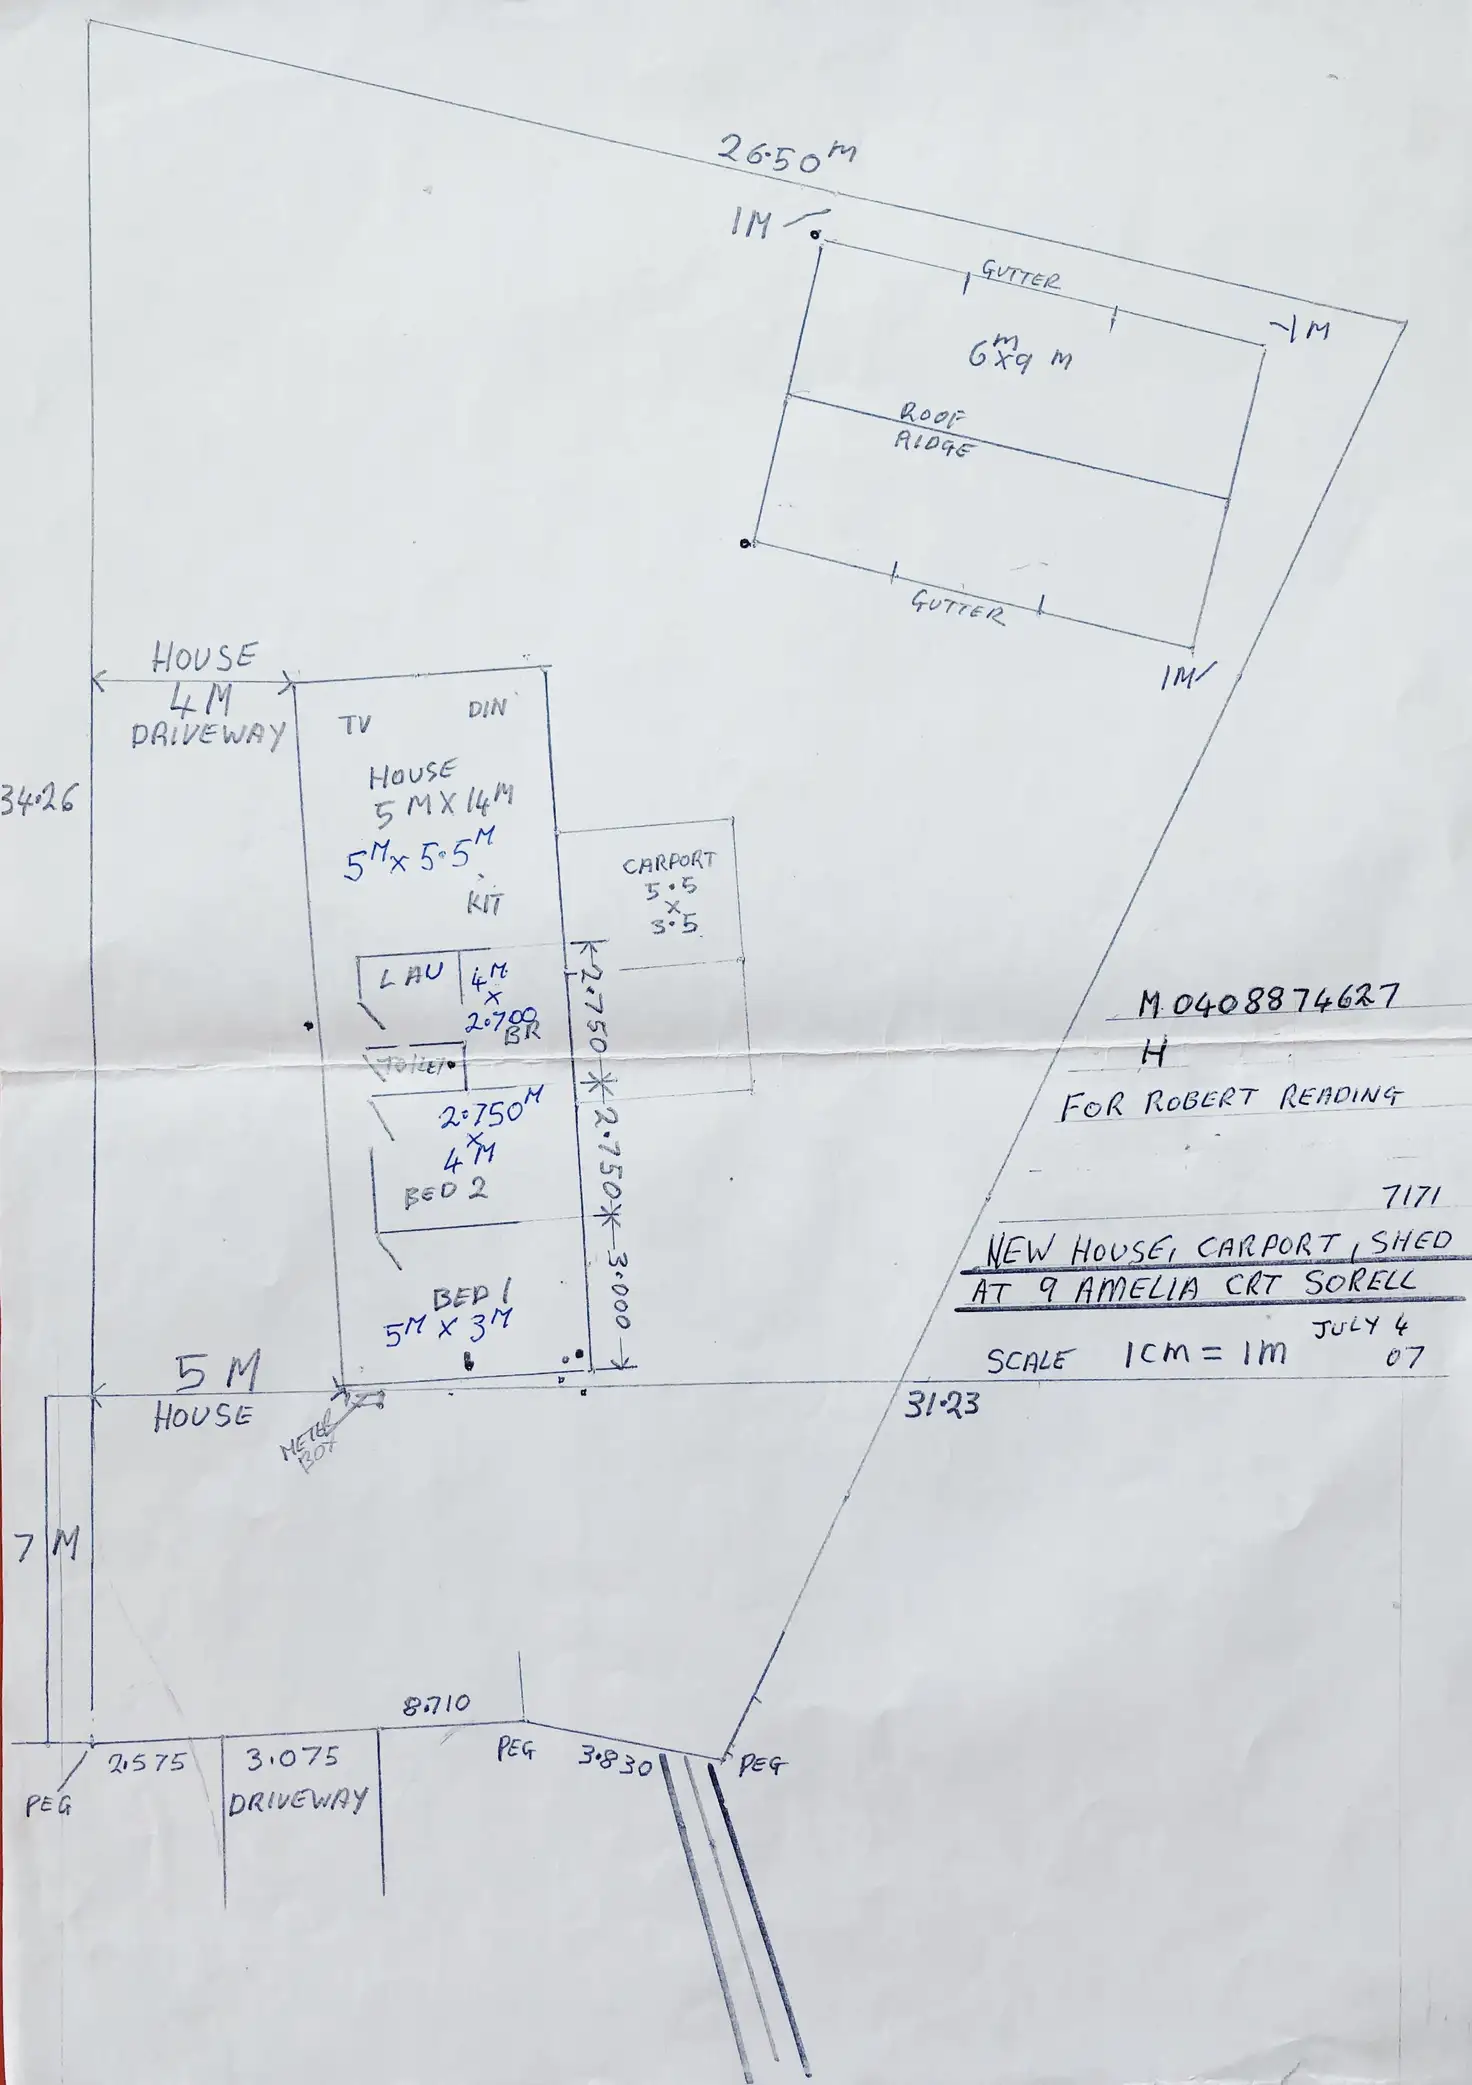 26.50 M
1M
GUTTER
1M
6M X 9 M
ROOF
RIDGE
GUTTER
1M
HOUSE
4M
DRIVEWAY
34.26
TV
DIN
HOUSE
5 M X 14M
5M X 5.5M
KIT
CARPORT
5.5
X
3.5
LAU
4M
X
2.700
BR
TOILET
2.750M
X
4M
BED 2
2.750
2.750
3.000
BED 1
5M X 3M
M 0408874627
H
FOR ROBERT READING
7171
NEW HOUSE, CARPORT, SHED
AT 9 AMELIA CRT SORELL
JULY 4
07
SCALE 1CM = 1M
5 M
HOUSE
METER
BOX
31.23
7 M
8.710
PEG
2.575
3.075
DRIVEWAY
PEG
3.830
PEG